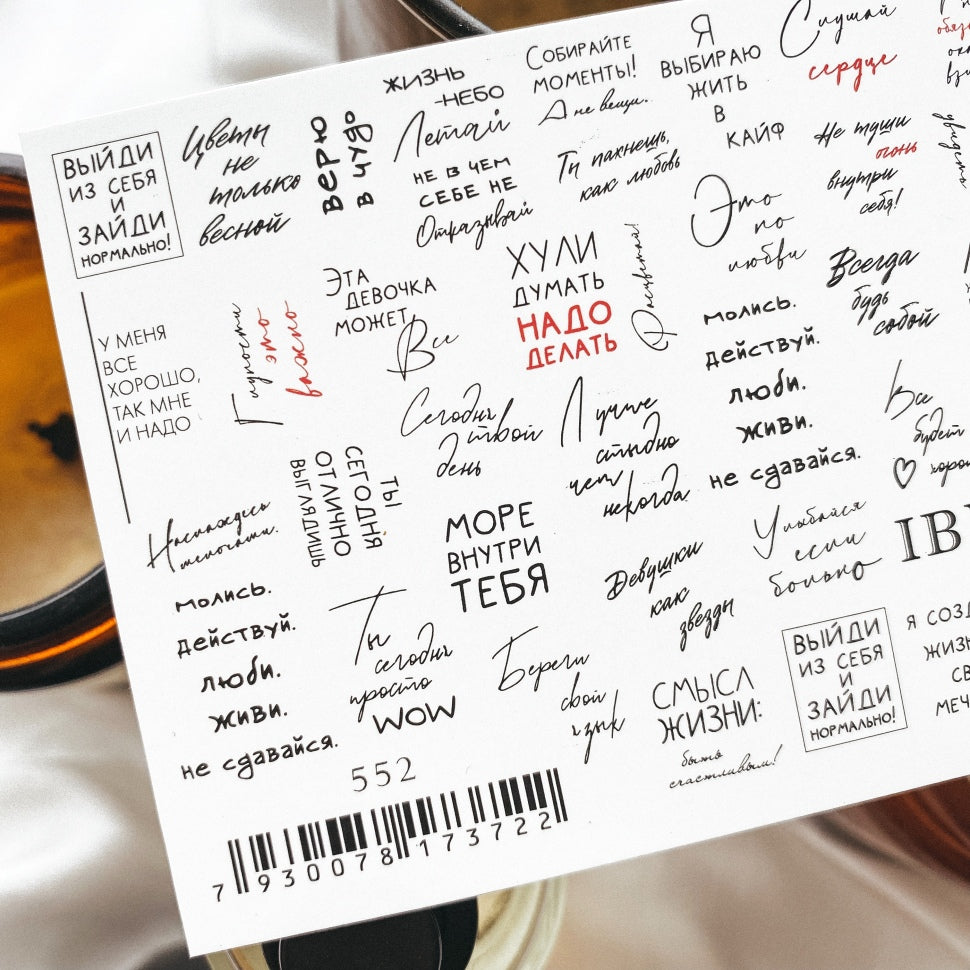 ВЫЙДИ
ИЗ СЕБЯ
И
ЗАЙДИ
НОРМАЛЬНО!
Цветы
не
только
весной
Верю
в чудо
ЖИЗНЬ
-НЕБО
Летай
НЕ В ЧЕМ
СЕБЕ НЕ
Отказывай
СОБИРАЙТЕ
МОМЕНТЫ!
А не вещи.
Ты пахнешь,
как любовь
Я
ВЫБИРАЮ
ЖИТЬ
В
КАЙФ
Слушай
сердце
Не туши
огонь
внутри
себя!
увидеть
У МЕНЯ
ВСЕ
ХОРОШО,
ТАК МНЕ
И НАДО
Глупости
это
важно
ЭТА
ДЕВОЧКА
МОЖЕТ
Все
ХУЛИ
ДУМАТЬ
НАДО
ДЕЛАТЬ
Расцветай!
Это
по
любви
Всегда
будь
собой
молись.
действуй.
люби.
живи.
не сдавайся.
Все
будет
Насладись
мелочами.
ТЫ
СЕГОДНЯ
ОТЛИЧНО
ВЫГЛЯДИШЬ
Сегодня
твой
день
Лучше
стыдно
чем
никогда
МОРЕ
ВНУТРИ
ТЕБЯ
Девушки
как
звезды
Улыбайся
если
больно
IB
молись.
действуй.
люби.
живи.
не сдавайся.
Ты
сегодня
просто
WOW
Береги
свой
язык
СМЫСЛ
ЖИЗНИ:
быть
счастливым!
ВЫЙДИ
ИЗ СЕБЯ
И
ЗАЙДИ
НОРМАЛЬНО!
Я СОЗД
ЖИЗН
СВ
МЕЧ
552
7 930078 173722